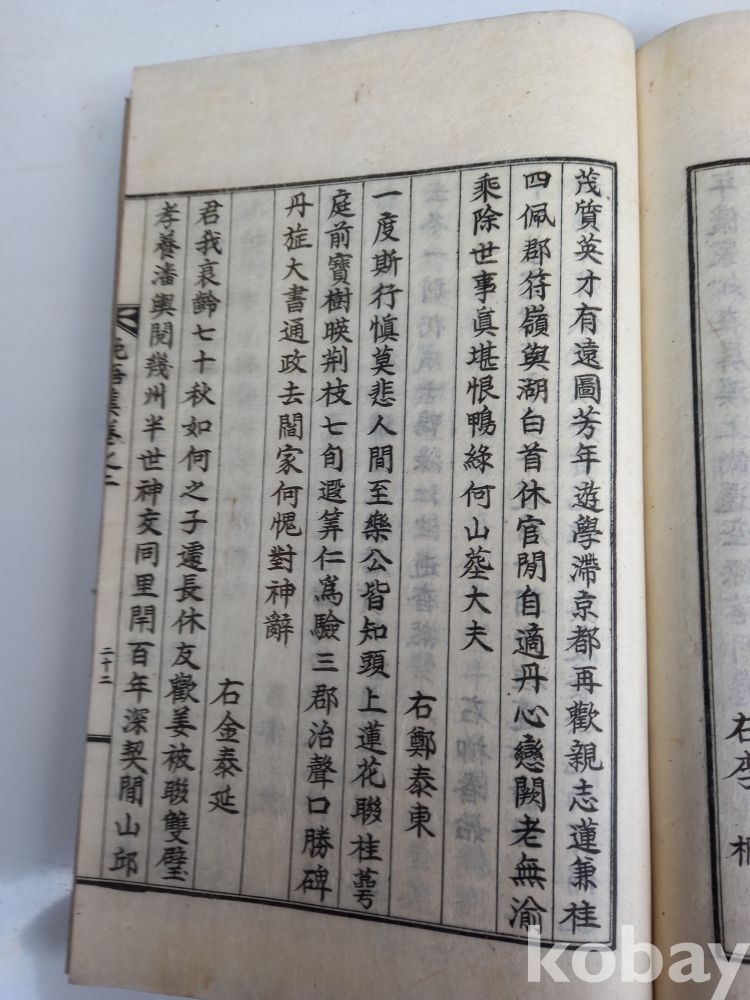 茂質英才有遠圖芳年遊學滯京都再歡親志蓮兼桂
四佩郡符嶺與湖白首休官閒自適丹心戀闕老無渝
乘除世事眞堪恨鴨綠何山葬大夫
右鄭泰東
一度斯行愼莫悲人間至樂公皆知頭上蓮花聯桂萼
庭前寶樹暎荆枝七旬遐筭仁爲驗三郡治聲口勝碑
丹旌大書通政去閻家何愧對神辭
右金泰延
君我衰齡七十秋如何之子遽長休友歡姜被聯雙璧
孝養潘輿閱幾州半世神交同里閈百年深契閒山邱
晚悟集卷之二
二十二
右李 㭓
kobay